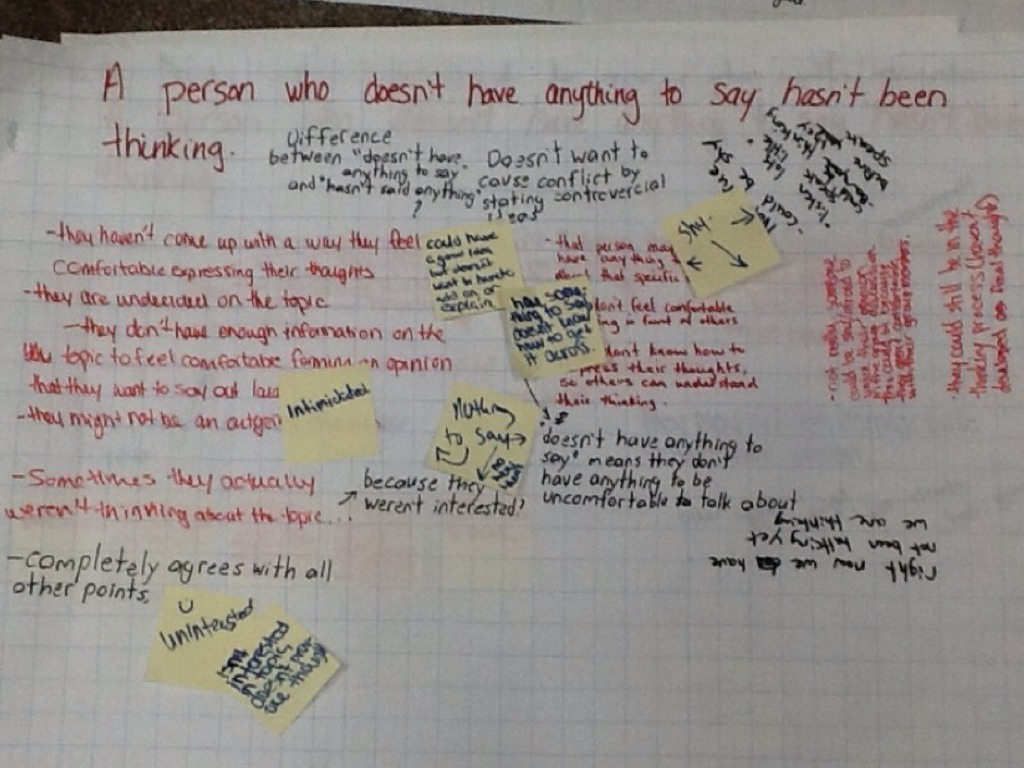 A person who doesn't have anything to say hasn't been
thinking.
Difference
between "doesn't have
anything to say"
and "hasn't said anything"
?
Doesn't want to
cause conflict by
stating controvercial
ideas
-they haven't come up with a way they feel
comfortable expressing their thoughts
-they are undecided on the topic
-they don't have enough information on the
topic to feel comfortabe forming an opinion
that they want to say out loud
-they might not be an outgoi
-Sometimes they actually
weren't thinning about the topic...
because they
weren't interested?
-completely agrees with all
other points.
could have
a good idea
but doesn't
want to have to
add on or
explain
has some
thing to say
doesn't know
how to get
it across.
Shy.
-that person may
have anything
that specific
don't feel comfortable
in front of others
don't know how to
press their thoughts,
so others can understand
their thinking.
Intimidated
Nothing
to say
"doesn't have anything to
say" means they don't
have anything to be
uncomfortable to talk about
right now we have
not been talking yet
we are thinking
-they could still be in the
thinking process (haven't
developed a final thought)
-not really, someone
could be
Uninterested
Isnt
interested
in topic